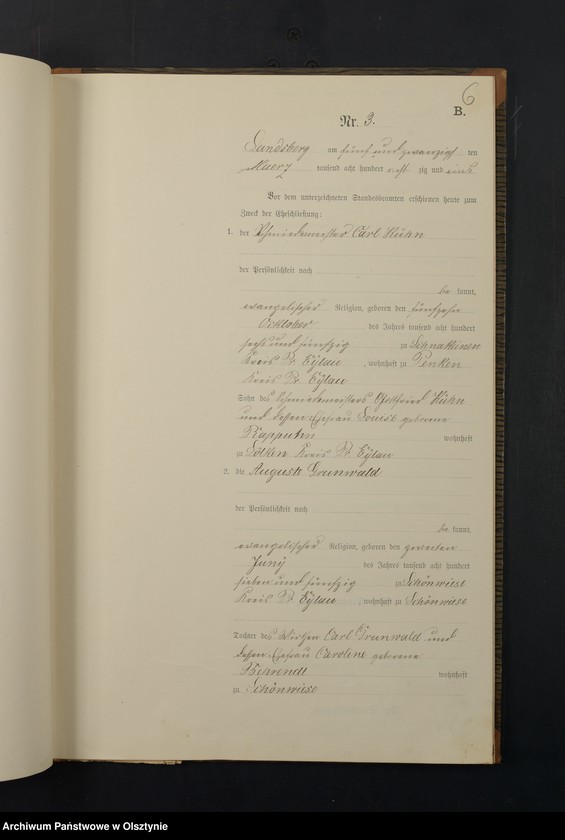 6
B.
Nr. 3.
Landsberg am fünf und zwanzigsten
Maerz tausend acht hundert acht zig und eins
Vor dem unterzeichneten Standesbeamten erschienen heute zum
Zweck der Eheschließung:
1. der Schmiedemeister Carl Kühn
der Persönlichkeit nach
be kannt,
evangelischer Religion, geboren den fünfzehn
October des Jahres tausend acht hundert
sechs und fünfzig zu Schnakeinen
Kreis Pr. Eylau, wohnhaft zu Penken
Kreis Pr. Eylau
Sohn des Schmiedemeisters Gottfried Kühn
und dessen Ehefrau Louise geborene
Rapputhn wohnhaft
zu Kreis Pr. Eylau
2. die Auguste Grunwald
der Persönlichkeit nach
be kannt,
evangelischer Religion, geboren den zweiten
Juny des Jahres tausend acht hundert
sieben und fünfzig zu Schönwiese
Kreis Pr. Eylau, wohnhaft zu Schönwiese
Tochter des Wirthen Carl Grunwald und
dessen Ehefrau Caroline geborene
Behrendt wohnhaft
zu Schönwiese
Archiwum Państwowe w Olsztynie